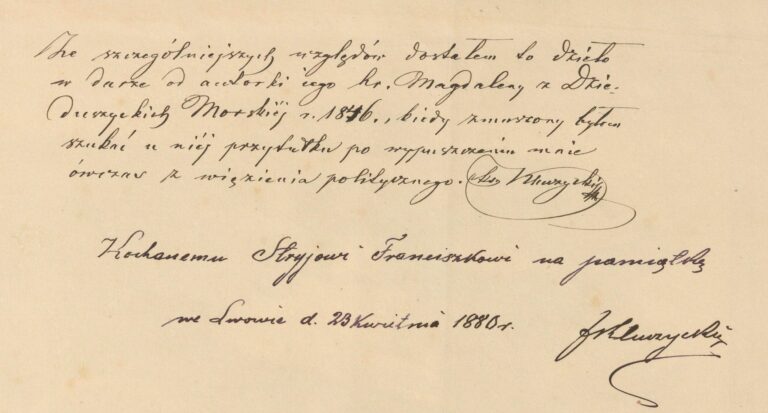 Ze szczególniejszych względów dostałem to dzieło
w darze od autorki jego hr. Magdaleny z Dzie-
duszyckich Morskiéj r. 1846., kiedy zmuszony byłem
szukać u niéj przytułku po wypuszczeniu mnie
ówczas z więzienia politycznego. Kluczycki
Kochanemu Stryjowi Franciszkowi na pamiątkę
we Lwowie d. 23 Kwietnia 1880 r.
Kluczycki